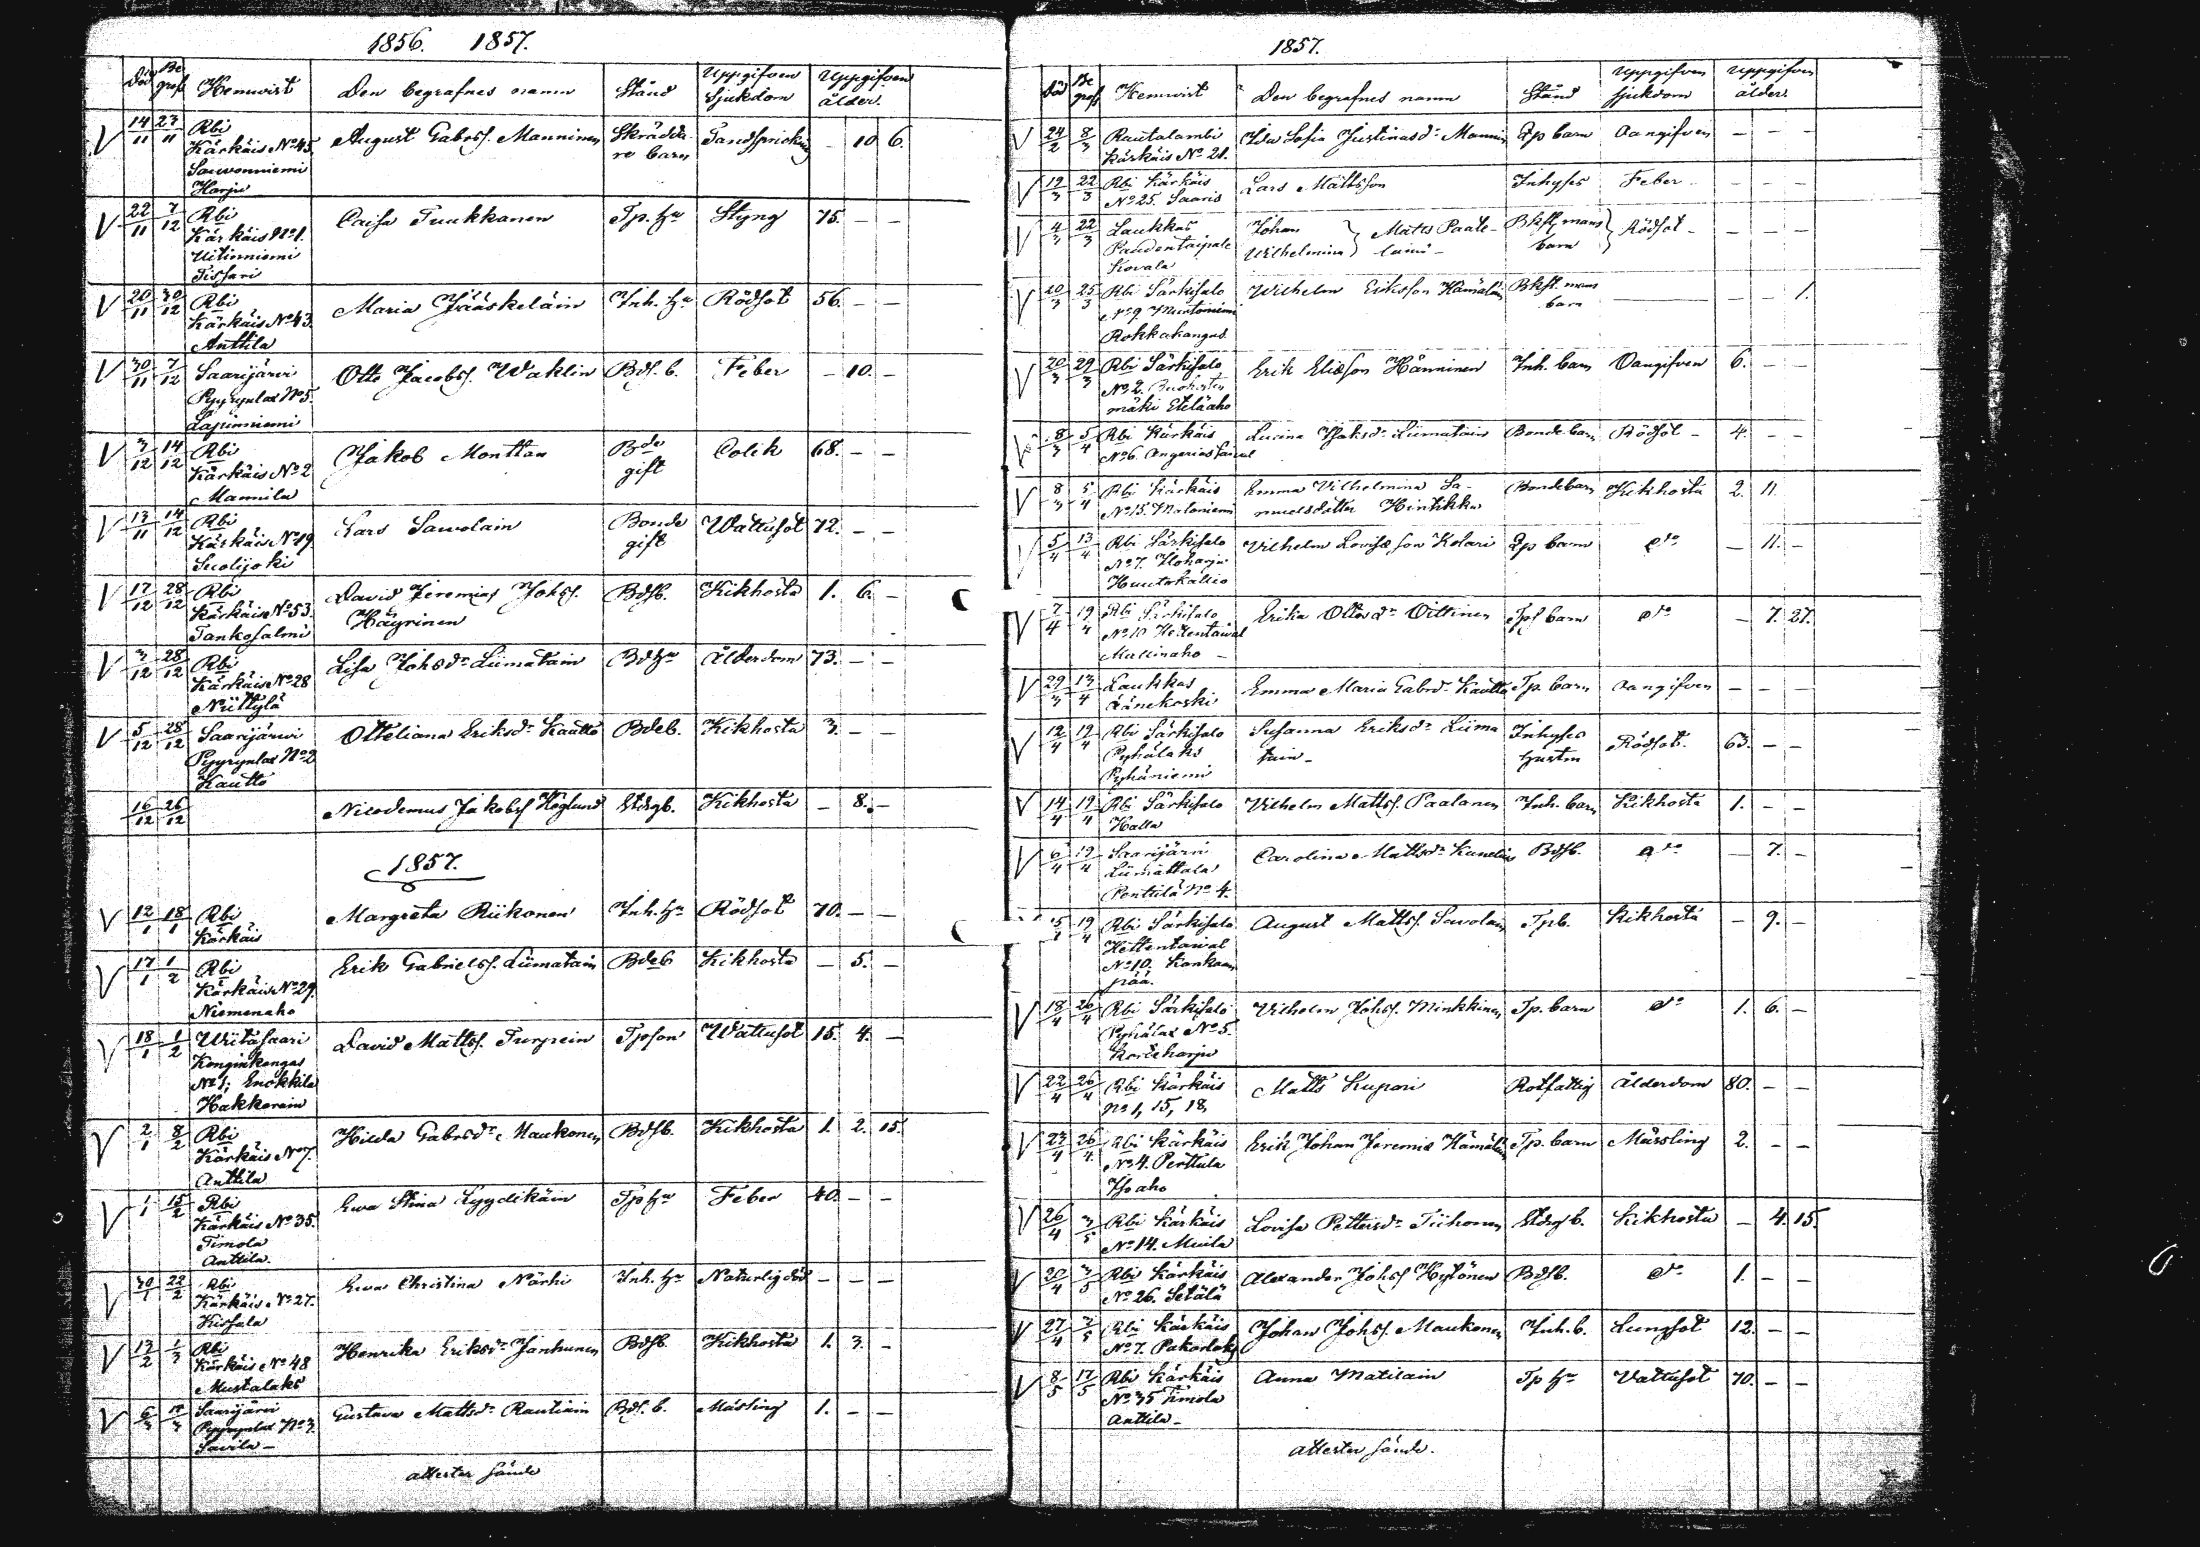 1856. 1857.
Död Be graf. Hemvist Den begrafnes namn Stånd Uppgifven Sjukdom Uppgifven ålder.
14/11 23/11 Rbi August Gabrs. Manninen Skrädda- Tandsprickning - 10 6.
Kärkäis No 45. re barn
Sauvonniemi
Harju
22/11 7/12 Rbi Caisa Tuukkanen Tp. hu Styng 75. - -
Kärkäis No 1.
Uitinniemi
Tissari
20/11 30/12 Rbi Maria Jääskeläin Inh. hu Rödsot 56. - -
Kärkäis No 43.
Anttila
30/11 7/12 Saarijärvi Otto Jacobs. Waklin Bds. b. Feber - 10. -
Pyyrynlax No 5.
Lapinniemi
3/12 14/12 Rbi Jakob Monttan Bde Colik 68. - -
Kärkäis No 2 gift
Mannila
13/11 14/12 Rbi Lars Sawolain Bonde Wattusot 72. - -
Kärkäis No 19. gift
Suolijoki
17/12 28/12 Rbi David Jeremias Johs. Bdsb. Kikhosta 1. 6. -
Kärkäis No 53. Häyrinen
Tankosalmi
3/12 28/12 Rbi Lisa Johsdr Liimatain Bdhu Ålderdom 73. - -
Kärkäis No 28
Niittylä
5/12 28/12 Saarijärvi Otteliana Eriksdr Kautto Bdeb. Kikhosta 3. - -
Pyyrynlax No 2
Kautto
16/12 26/12 Nicodemus Jakobs Höglund Stdgb. Kikhosta - 8. -
1857.
12/1 18/1 Rbi Margreta Riikonen Inh. hu Rödsot 70. - -
Kärkäis
17/1 1/2 Rbi Erik Gabriels. Liimatain Bdeb Kikhosta - 5. -
Kärkäis No 29.
Niemenaho
18/1 1/2 Wiitasaari David Matts. Turpein Tpson Wattusot 15. 4. -
Konginkangas
No 1; Enokkila
Hakkarain
2/1 8/2 Rbi Hilda Gabrsdr Maukonen Bdsb. Kikhosta 1. 2. 15.
Kärkäis No 7.
Anttila
1/1 15/2 Rbi Ewa Stina Lyydikäin Tphu Feber 40. - -
Kärkäis No 35.
Timola
Anttila.
30/1 22/2 Rbi Ewa Christina Närhi Inh. hu Naturlig död - - -
Kärkäis No 27.
Kissala
13/2 1/3 Rbi Henrika Eriksdr Janhunen Bdsb. Kikhosta 1. 3. -
Kärkäis No 48
Mustalaks
Saarijärvi Gustava Mattsdr Rautiain Bds. b. Mäsling 1. - -
Pyyrynlax No 3.
Savila -
attester sände
1857.
Död Be graf. Hemvist Den begrafnes namn Stånd Uppgifven sjukdom Uppgifven ålder.
24/2 8/3 Rautalambi Ida Sofia Justinasdr Mannin Tp barn Oangifven - - -
Kärkäis No 21.
19/3 22/3 Rbi Kärkäis Lars Mattsson Inhyses Feber - - - -
No 25. Saaris
4/3 22/3 Laukkas Johan } Matts Paate- Bksk mans } Rödsot - - - -
Paadentaipale Wilhelmina } lainö - barn
Kovala
20/3 25/3 Rbi Särkisalo Wilhelm Eriksson Hämäläin Bkst. mans - - 1.
No 9. barn
Rokkakangas
20/3 29/3 Rbi Särkisalo Erik Eliasson Hänninen Inh. barn Oangifven 6. - -
No 2.
mäki Eteläaho
8/3 5/4 Rbi Kärkäis Lucina Isaksdr Liimatain Bonde barn Rödsot - 4. - -
No 6.
8/3 5/4 Rbi Kärkäis Emma Vilhelmina Sa- Bondebarn Kikhosta 2. 11.
No 15. Mataniemi muelsdotter Hintikka
5/4 13/4 Rbi Särkisalo Vilhelm Lovisæ son Kolari Tp barn do - 11. -
No 7. Iloharju
Huutokallio
7/4 19/4 Rbi Särkisalo Erika Ottosdr Oittinen Tps barn do - 7. 27.
No 10 Hettentaival
Mullinaho -
29/3 13/4 Laukkas Emma Maria Gabrdr Kautto Tp. barn Oangifven - - -
Äänekoski
12/4 19/4 Rbi Särkisalo Susanna Eriksdr Liima Inhyses Rödsot. 63. - -
Pyhälaks tain - hustru
Pyhäniemi
14/4 19/4 Rbi Särkisalo Vilhelm Matts. Paalanen Inh. barn Kikhosta 1. - -
Halla
6/4 19/4 Saarijärvi Carolina Mattsdr Kunelius Bdsb. do - 7. -
Liimattala
Penttilä No 4.
19/4 Rbi Särkisalo August Matts. Savolain Tpb. Kikhosta - 9. -
Hettentaival
No 10. Kankaan
pää.
18/4 26/4 Rbi Särkisalo Vilhelm Johs. Minkkinen Tp. barn do 1. 6. -
Pyhälax No 5.
Korteharju
22/4 26/4 Rbi Kärkäis Matts Kupari Rotfattig Ålderdom 80. - -
No 1, 15, 18,
23/4 26/4 Rbi Kärkäis Erik Johan Jeremias Hämäläin Tp. barn Mässling 2. - -
No 4. Perttula
Isoaho
26/4 3/5 Rbi Kärkäis Lovisa Pettersdr Tiihonen Stdsg b. Kikhosta - 4. 15.
No 14. Muila
20/4 3/5 Rbi Kärkäis Alexander Johs Hytönen Bdsb. do 1. - -
No 26. Setälä
27/4 3/5 Rbi Kärkäis Johan Johs. Maukonen Inh. b. Lungsot 12. - -
No 7.
8/5 17/5 Rbi Kärkäis Anna Matilain Tp hu Vattusot 70. - -
No 35 Timola
Anttila -
attester sände.